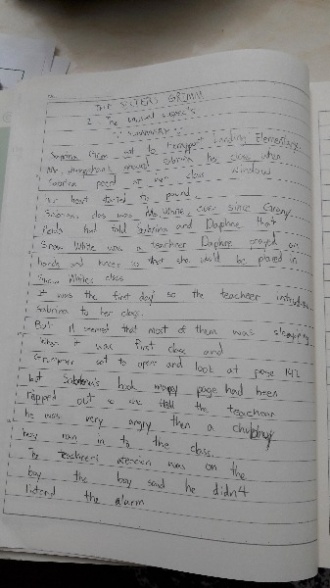 THE SISTERS GRIMM
2. The unusual suspects
summary
Sabrina Grimm got to Ferryport Landing Elementary
Mr. around Sabrina her class when
Sabrina peed at her class window
her heart started to pound
Sabrina's class was Ms. White, ever since Granny
Relda had told Sabrina and Daphne that
Snow White was a teachner Daphne prayed on
hands and knees so that she would be placed in
Snow Whites class
It was the first day so the teacheer
Sabrina to her class.
But it seemed that most of them was sleepping
it was first class and
Grammer got to open and look at page 142
but Sabrina's book page had been
ripped out so she tell the teachear
he was very angry then a chubby
boy ran in to the class.
The teacheers was on the
boy the boy said he didn4
the alarm